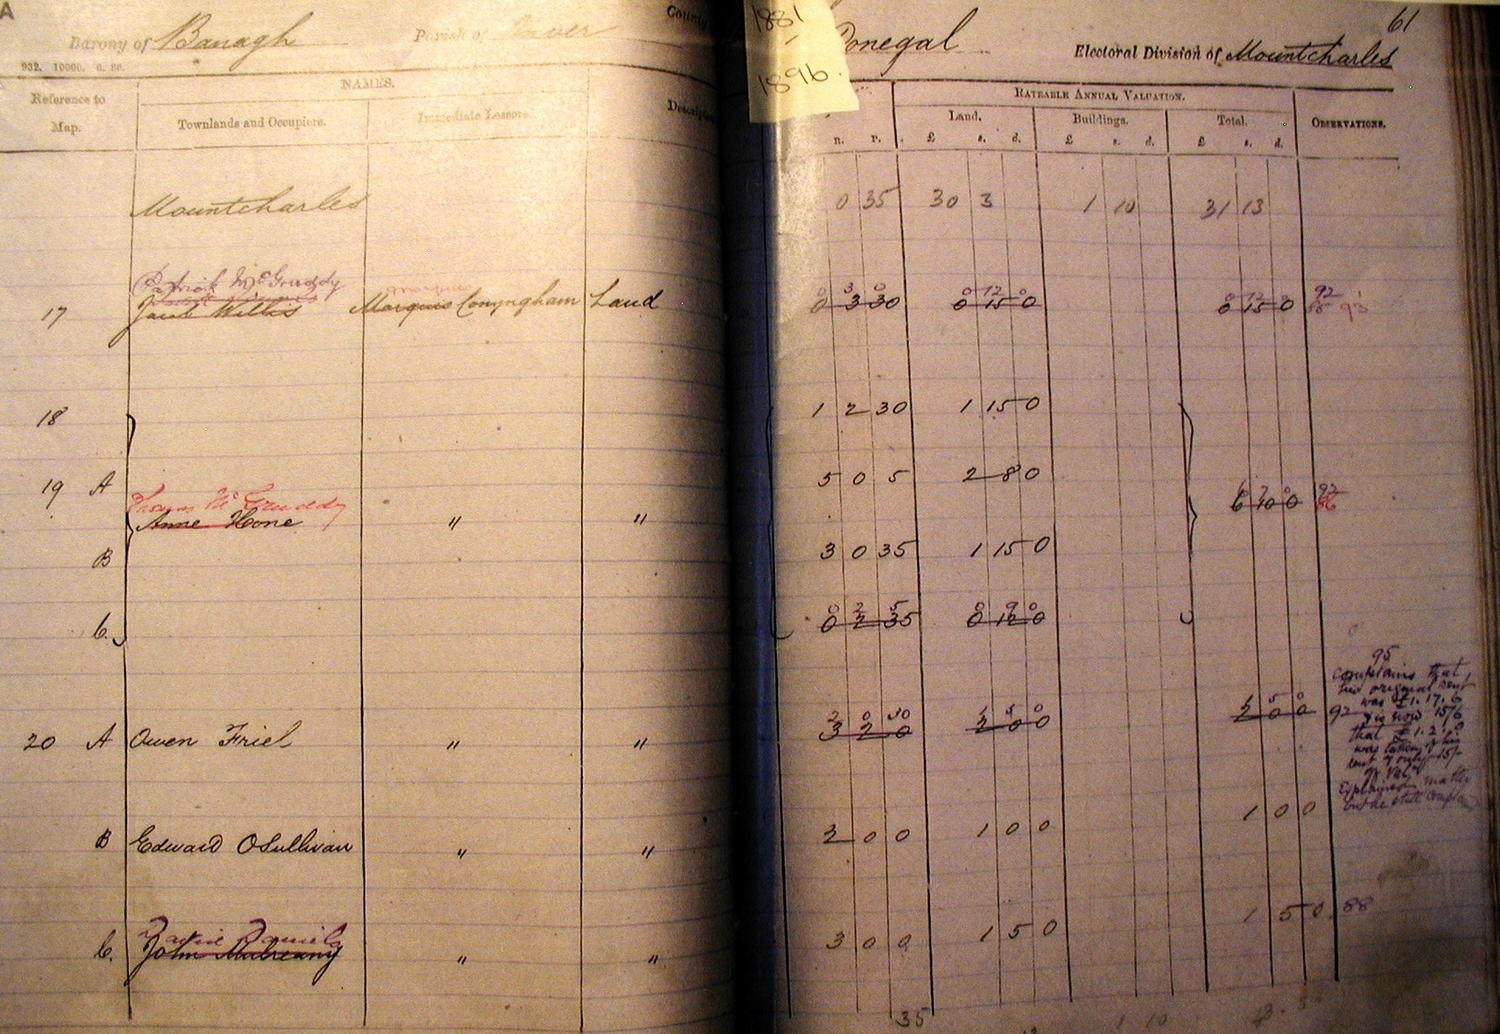 A
61
Barony of Banagh Parish of Inver County 1881 Donegal Electoral Division of Mountcharles
1896.
Reference to Map. NAMES. RATEABLE ANNUAL VALUATION. OBSERVATIONS.
Townlands and Occupiers. Immediate Lessors. Descript Land. Buildings. Total.
R. P. £ s. d. £ s. d. £ s. d.
Mountcharles 0 35 30 3 1 10 31 13
Patrick McGruddy Marquis 0 3 0 0 12 0 0 12 92
17 Jacob Willis Marquis Conyngham Land 0 3 30 0 15 0 0 15 0 93
18 1 2 30 1 15 0
19 A 5 0 5 2 8 0
McGruddy 92
Anne Hone " " 6 10 0 86
B 3 0 35 1 15 0
0 2 5 0 9 0
C. 0 35 0 12 0
95
complains that
his original rent
was £1.17.6
is now 15/6
2 0 30 1 5 0 1 5 0
20 A Owen Friel " " 3 2 0 2 0 0 2 0 0 92
that £1.2.
rent & only 15/-
Explained matter
but he still
B Edward OSullivan " " 2 0 0 1 0 0 1 0 0
Daniel
C. John Mulreany " " 3 0 0 1 5 0 1 5 0 88
35 1 10